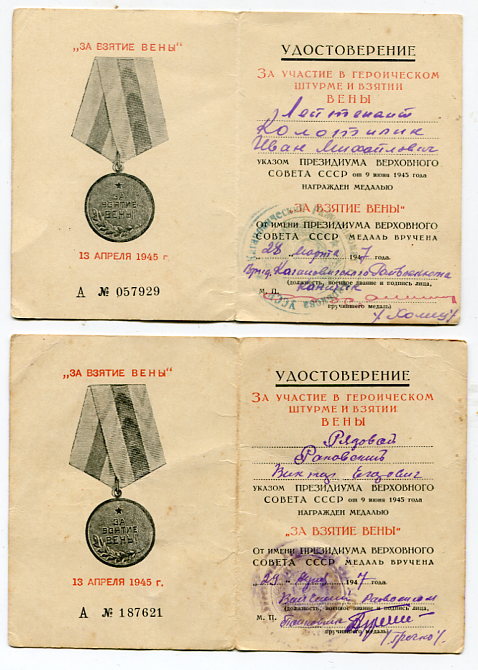 „ЗА ВЗЯТИЕ ВЕНЫ"
ЗА
ВЗЯТИЕ
ВЕНЫ
13 АПРЕЛЯ 1945 г.
А № 057929
УДОСТОВЕРЕНИЕ
ЗА УЧАСТИЕ В ГЕРОИЧЕСКОМ
ШТУРМЕ И ВЗЯТИИ
ВЕНЫ
Лейтенант
Иван Михайлович
УКАЗОМ ПРЕЗИДИУМА ВЕРХОВНОГО
СОВЕТА СССР от 9 июня 1945 года
НАГРАЖДЕН МЕДАЛЬЮ
„ЗА ВЗЯТИЕ ВЕНЫ"
ОТ ИМЕНИ ПРЕЗИДИУМА ВЕРХОВНОГО
СОВЕТА СССР МЕДАЛЬ ВРУЧЕНА
„28" марта 1947 года.
(должность, военное звание и подпись лица,
М. П.
вручившего медаль)
„ЗА ВЗЯТИЕ ВЕНЫ"
ЗА
ВЗЯТИЕ
ВЕНЫ
13 АПРЕЛЯ 1945 г.
А № 187621
УДОСТОВЕРЕНИЕ
ЗА УЧАСТИЕ В ГЕРОИЧЕСКОМ
ШТУРМЕ И ВЗЯТИИ
ВЕНЫ
Рядовой
Раковский
Виктор
УКАЗОМ ПРЕЗИДИУМА ВЕРХОВНОГО
СОВЕТА СССР от 9 июня 1945 года
НАГРАЖДЕН МЕДАЛЬЮ
„ЗА ВЗЯТИЕ ВЕНЫ"
ОТ ИМЕНИ ПРЕЗИДИУМА ВЕРХОВНОГО
СОВЕТА СССР МЕДАЛЬ ВРУЧЕНА
„29" 1947 года.
(должность, военное звание и подпись лица,
М. П.
вручившего медаль)